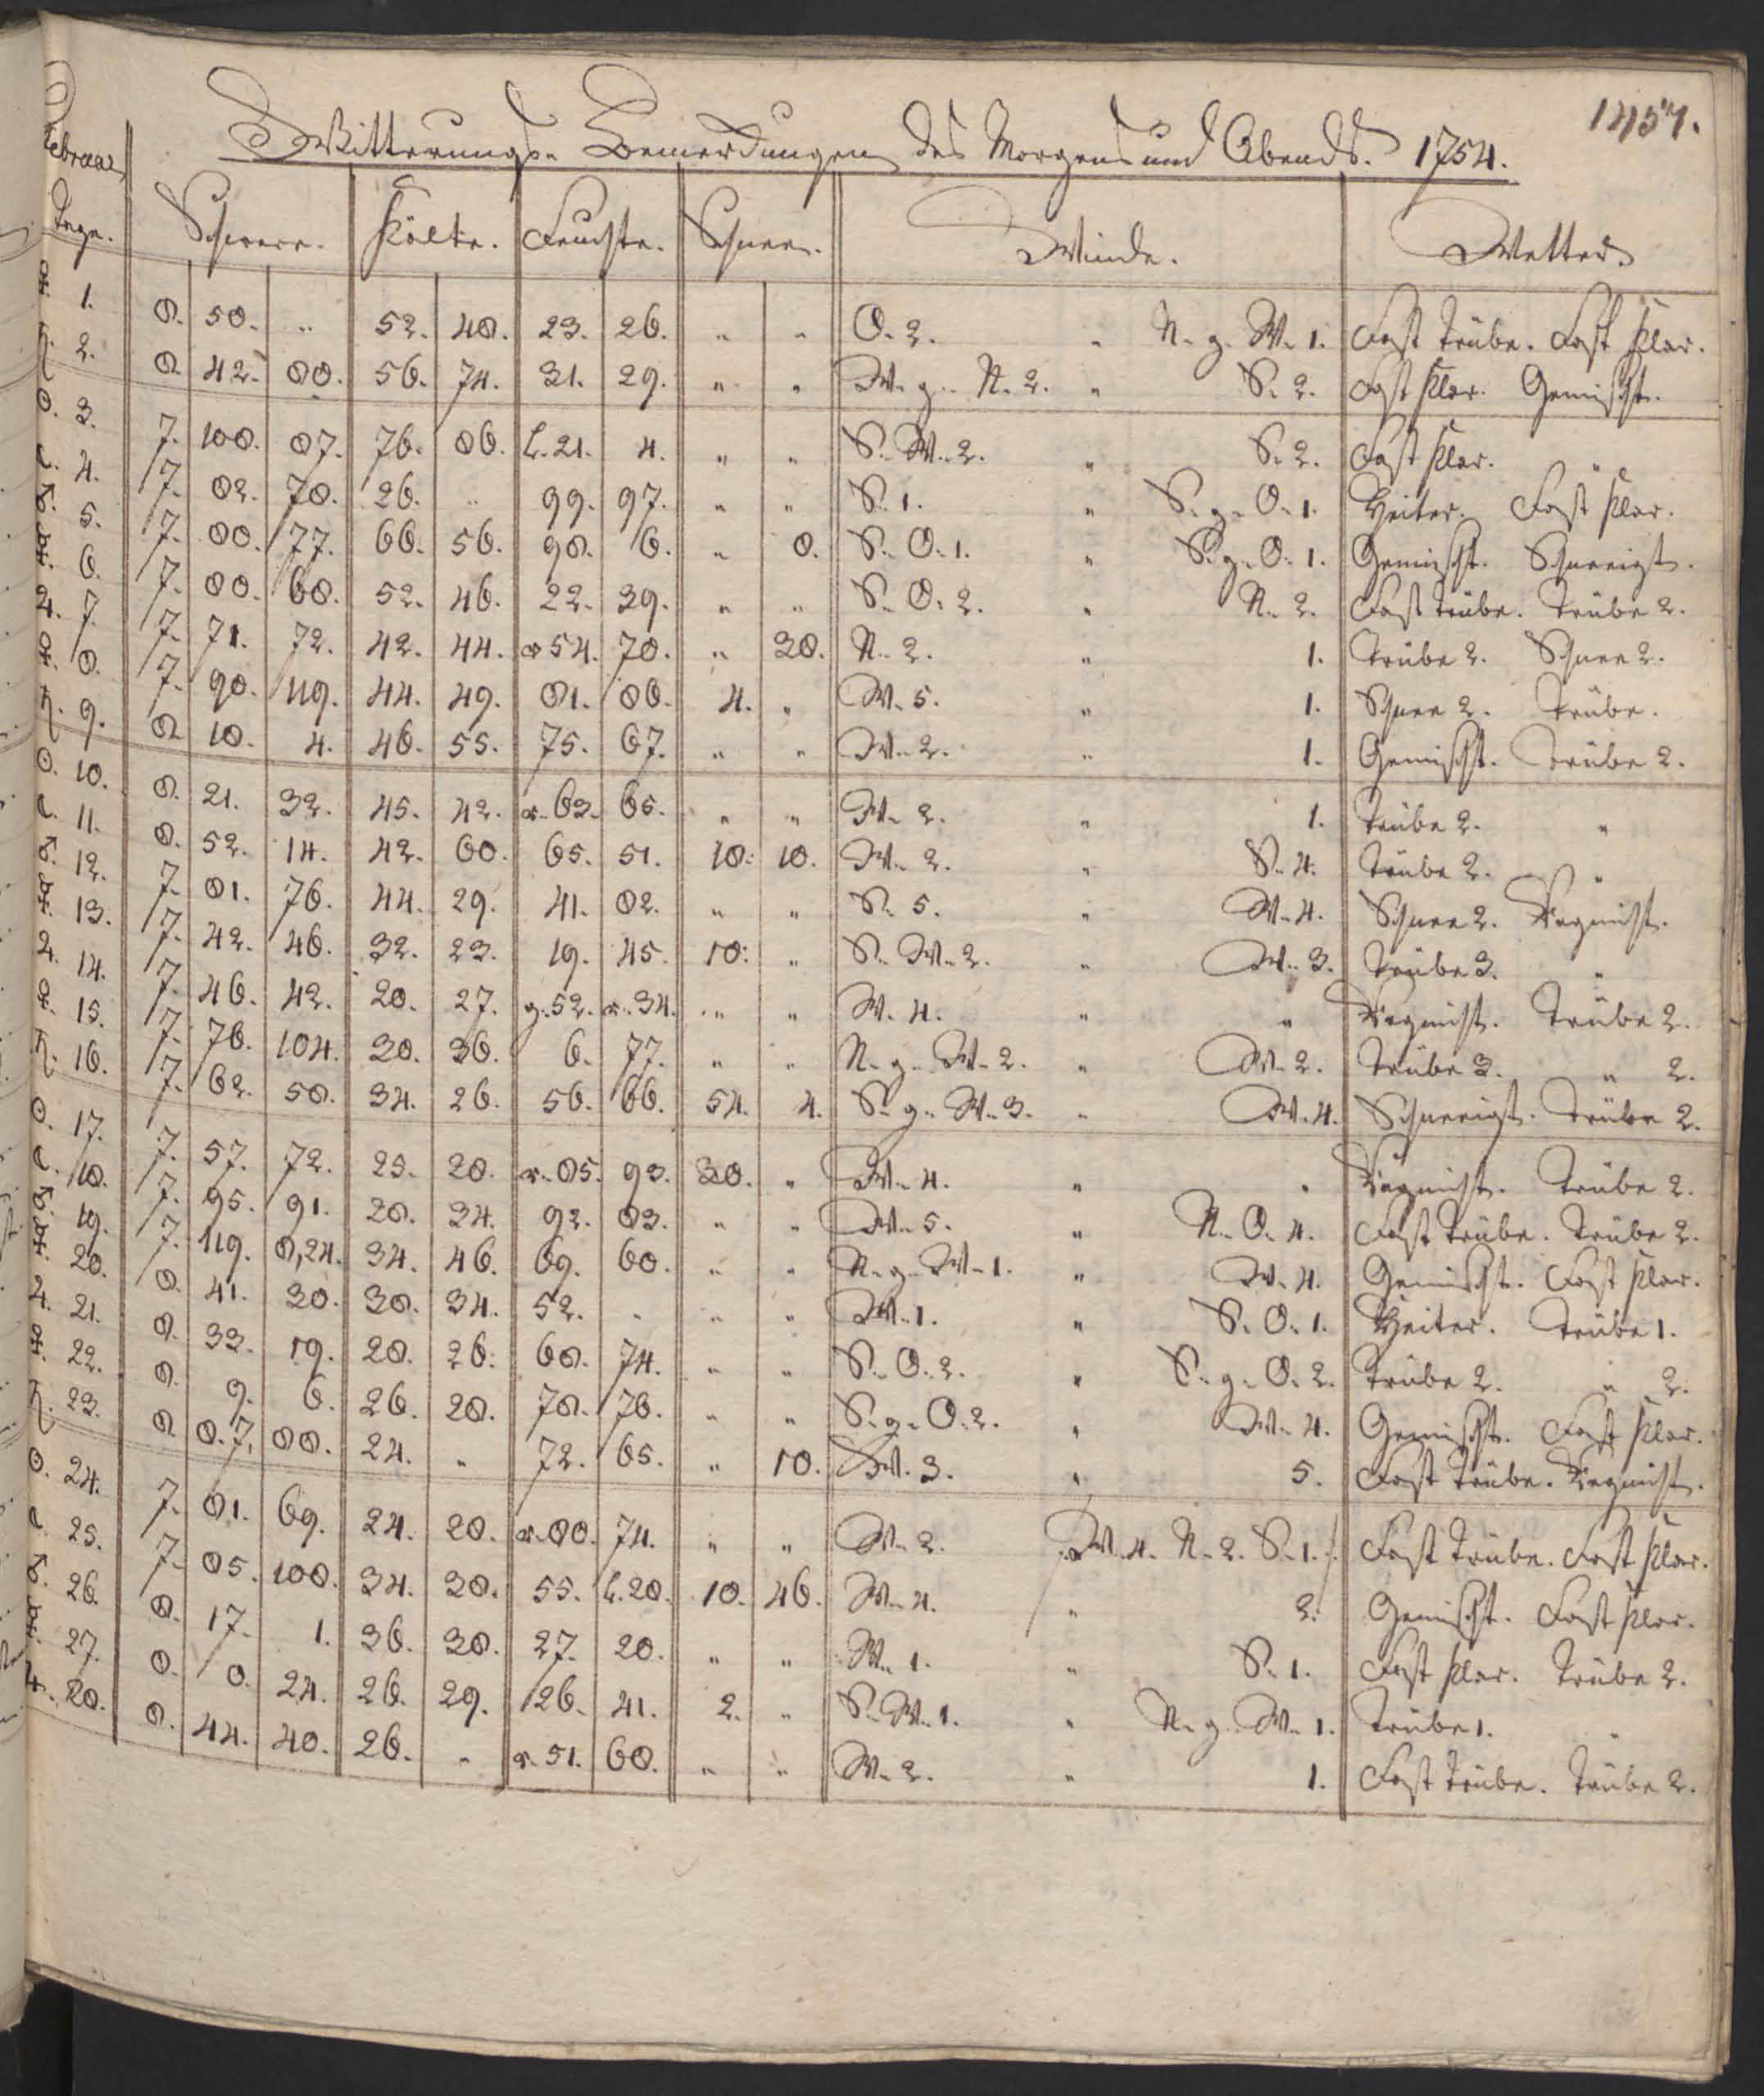 1457.
Februar
Witterungs-Bemerkungen des Morgens und Abends. 1754.
Tage. Schwere. Kälte. Feuchte. Schnee. Winde. Wetter.
♀. 1. 8. 58. " 52. 48. 23. 26. " " O. 2. " N. g. W. 1. Fast trübe. Fast klar.
♄. 2. 8. 42. 00. 56. 74. 31. 29. " " W. g. N. 2. " S. 2. Fast klar. Gemischt.
☉. 3. 7. 108. 87. 76. 86. h. 21. 4. " " S. W. 2. " S. 2. Fast klar. "
☾. 4. 7. 82. 78. 26. " 99. 97. " " S. 1. " S. g. O. 1. Heiter. Fast klar.
♂. 5. 7. 80. 77. 66. 56. 98. 6. " 8. S. O. 1. " S. g. O. 1. Gemischt. Schneeigt.
☿. 6. 7. 80. 68. 52. 46. 22. 39. " " S. O. 2. " N. 2. Fast trübe. Trübe 2.
♃. 7. 7. 71. 72. 42. 44. r. 54. 70. " 20. N. 2. " 1. Trübe 2. Schnee 2.
♀. 8. 7. 90. 119. 44. 49. 81. 86. 4. " W. 5. " 1. Schnee 2. Trübe.
♄. 9. 8. 18. 4. 46. 55. 75. 67. " " W. 2. " 1. Gemischt. Trübe 2.
☉. 10. 8. 21. 32. 45. 42. r. 63. 65. " " W. 2. " 1. Trübe 2. "
☾. 11. 8. 52. 14. 42. 60. 65. 51. 10. 10. W. 2. " S. 4. Trübe 2. "
♂. 12. 7. 81. 76. 44. 29. 41. 82. " " S. 5. " W. 4. Schnee 2. Regnicht.
☿. 13. 7. 42. 46. 32. 23. 19. 45. 10. " S. W. 2. " W. 3. Trübe 3. "
♃. 14. 7. 46. 42. 20. 27. g. 52. r. 34. " " W. 4. " " Regnicht. Trübe 2.
♀. 15. 7. 76. 104. 30. 36. 6. 77. " " N. g. W. 2. " W. 2. Trübe 3. " 2.
♄. 16. 7. 62. 58. 34. 26. 56. 66. 54. 4. S. g. W. 3. " W. 4. Schneeigt. Trübe 2.
☉. 17. 7. 57. 72. 25. 28. r. 85. 93. 30. " W. 4. " " Regnicht. Trübe 2.
☾. 18. 7. 95. 91. 28. 34. 92. 83. " " W. 5. " N. O. 4. Fast trübe. Trübe 2.
♂. 19. 7. 119. 8,24. 34. 46. 69. 60. " " N. g. W. 1. " W. 4. Gemischt. Fast klar.
☿. 20. 8. 41. 30. 38. 34. 52. " " " W. 1. " S. O. 1. Heiter. Trübe 1.
♃. 21. 8. 33. 19. 28. 26. 68. 74. " " S. O. 2. " S. g. O. 2. Trübe 2. " 2.
♀. 22. 8. 9. 6. 26. 28. 78. 76. " " S. g. O. 2. " W. 4. Gemischt. Fast klar.
♄. 23. 8. 0. 7, 88. 24. " 72. 65. " 10. W. 3. " 5. Fast trübe. Regnicht.
☉. 24. 7. 81. 69. 24. 28. r. 80. 74. " " W. 2. W. 4. N. 2. S. 1. Fast trübe. Fast klar.
☾. 25. 7. 85. 108. 34. 38. 55. h. 20. 10. 46. W. 4. " 2. Gemischt. Fast klar.
♂. 26. 8. 17. 1. 36. 38. 27. 20. " " W. 1. " S. 1. Fast klar. Trübe 2.
☿. 27. 8. 0. 24. 26. 29. 26. 41. 2. " S. W. 1. " N. g. W. 1. Trübe 1. "
♃. 28. 8. 44. 40. 26. " r. 51. 60. " " W. 2. " 1. Fast trübe. Trübe 2.